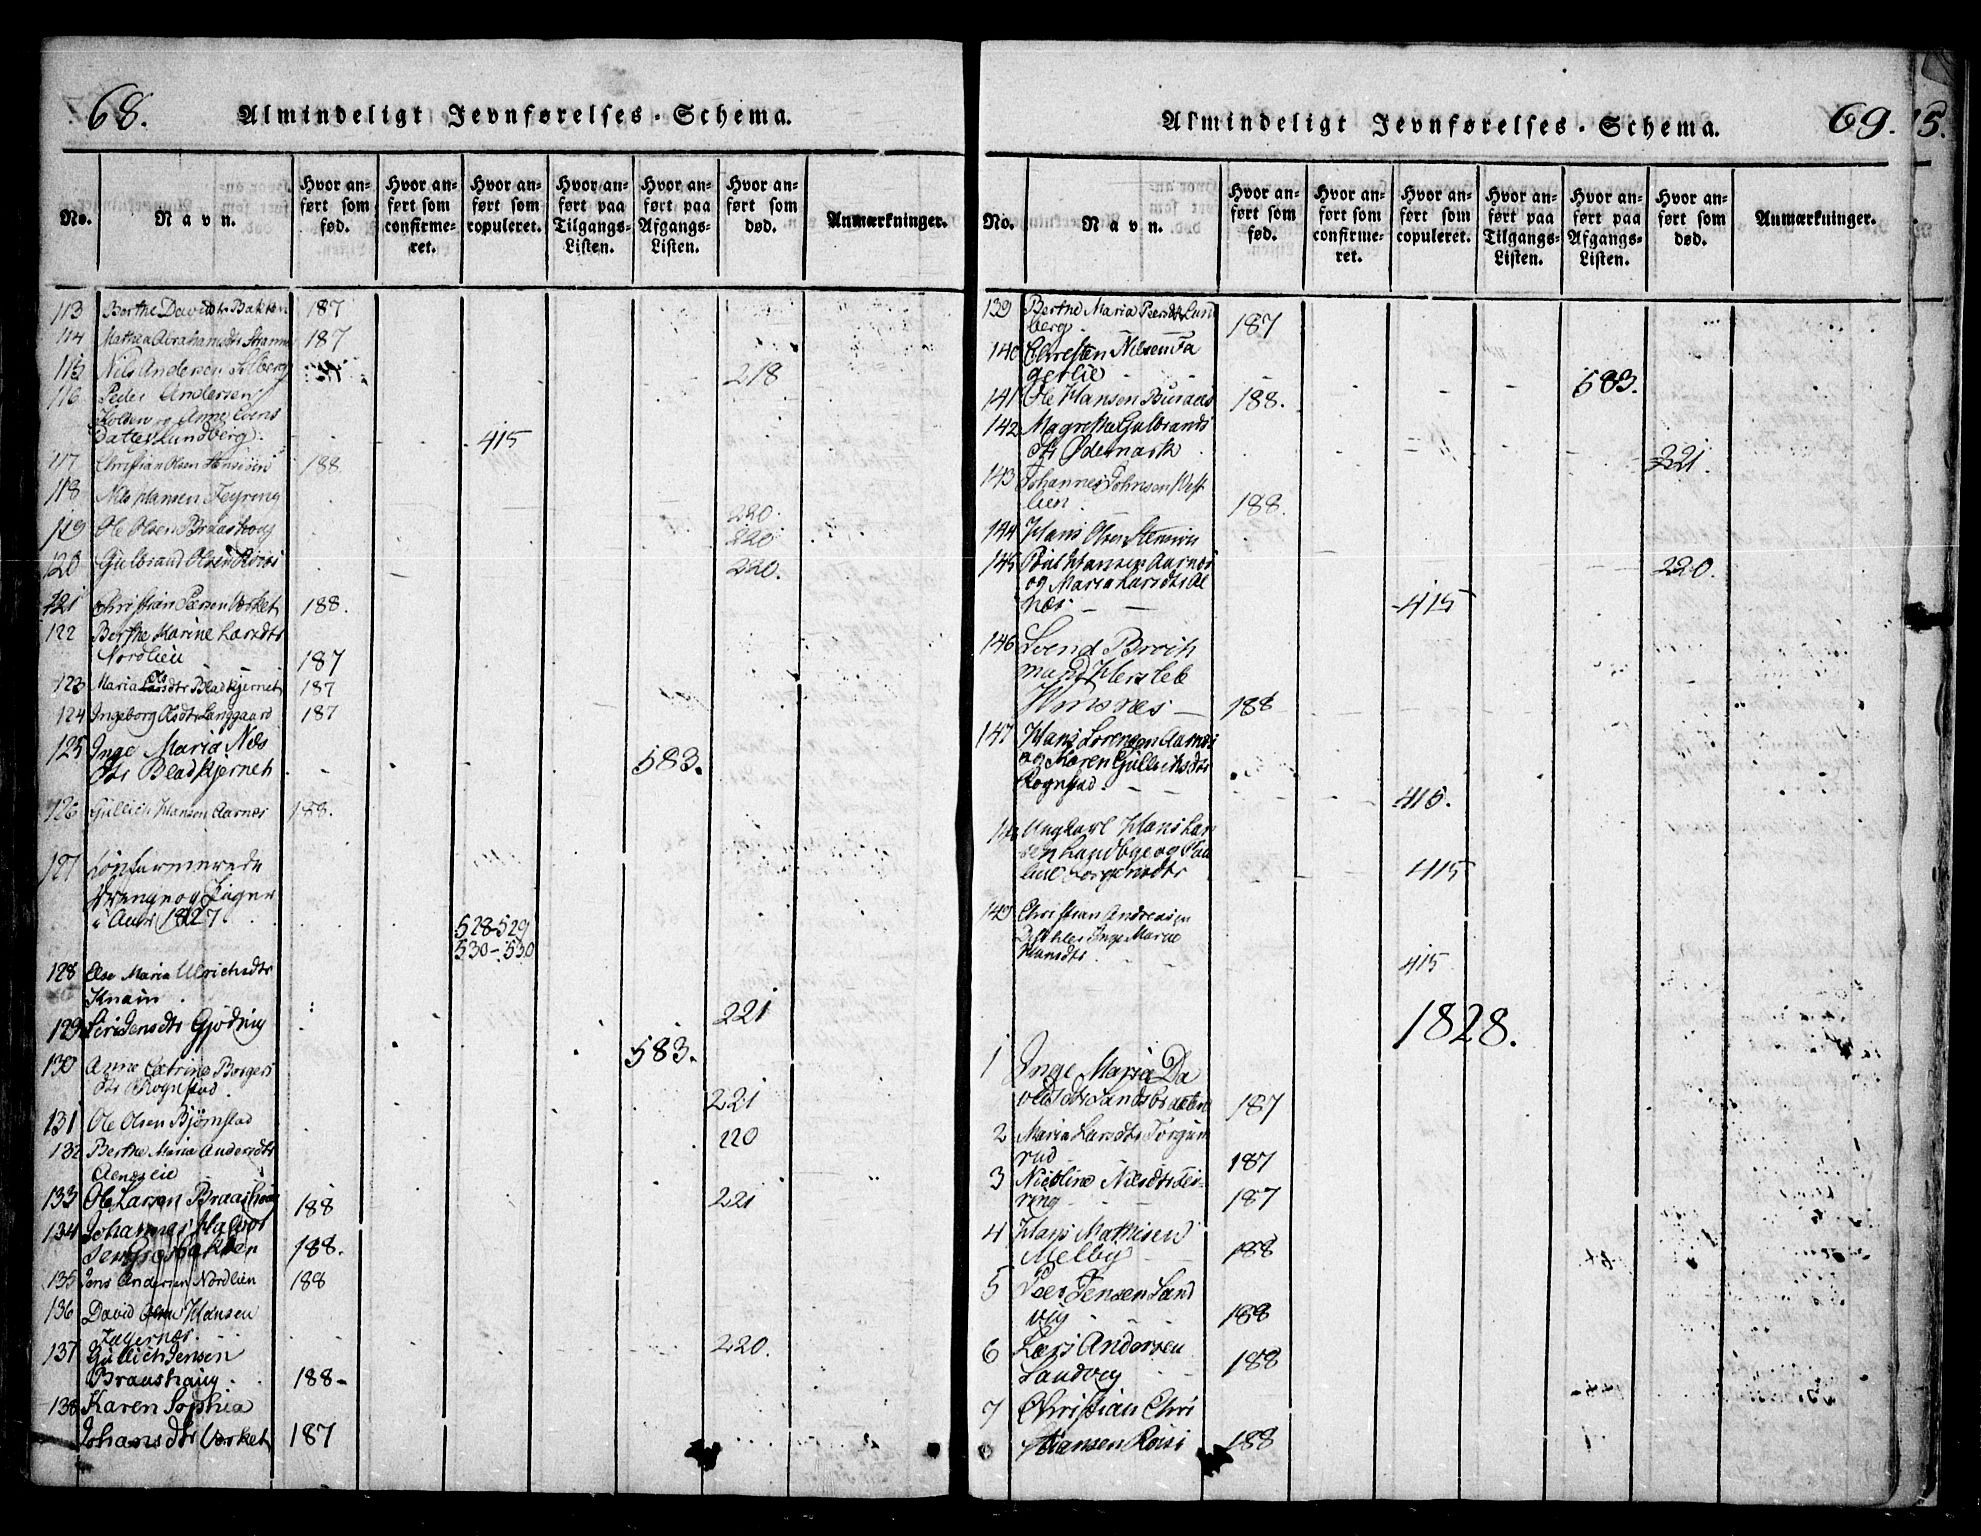 68.
Almindeligt Jevnførelses-Schema.
No.
Navn.
Hvor anført som fød.
Hvor anført som confirmeret.
Hvor anført som copuleret.
Hvor anført paa Tilgangs-Listen.
Hvor anført paa Afgangs-Listen.
Hvor anført som død.
Anmærkninger.
113 Berthe Davidtr Bakken 187
114 Mathea Abrahamsdtr 187
115 Nils Andersen Solberg 218
116 Peder Andersen
Kolden og Anne Evens
Datter Lundberg. 415
117 Christian Olsen 188
118 Nils Hansen Feyring 220.
119 Ole Olsen Braashoug 220
120 Gulbrand Olsen 220.
121 Christian Pæersen Værket 188.
122 Berthe Marine Larsdtr
Nordlien 187
123 Maria Olsdtr Bladkjernet 187
124 Ingeborg Olsdtr Langgaard 187
125 Inge Maria Niels
dtr Bladkjernet 583.
126 Gullich Hansen Aarnes 188.
127 Confirmerede
Drenge og Piger
i Aaret 1827. 528-529
530-530
128 Else Maria Ulrichsdtr
Knain. 221
129 Siri Jensdtr Gjødrig 583.
130 Anne Catrine Borgers
dtr Rognstad. 221
131 Ole Olsen Bjørnstad 220
132 Berthe Maria Andersdtr
221
133 Ole Larsen Braashoug 188
134 Johannes Halvor
sen Bakken 188.
135 Jens Andersen Nordlien 188
136 David Hansen
Fagernæs. 220.
137 Gullich Jensen
Braashaug. 188-
138 Karen Sophia
Johansdtr Værket 187
Almindeligt Jevnførelses-Schema.
69.
15.
No.
Navn.
Hvor anført som fød.
Hvor anført som confirmeret.
Hvor anført som copuleret.
Hvor anført paa Tilgangs-Listen.
Hvor anført paa Afgangs-Listen.
Hvor anført som død.
Anmærkninger.
139 Berthe Maria Peersdtr Lund
berg. 187
140 Christen Nilsen Fa
gerlie 583.
141 Ole Hansen Buraas 188.
142 Magrethe Gulbrands
dtr Ødemark 221.
143 Johannes Johnsen Vest
lien. 188.
144 Hans Olsen 220.
145 Poul Hansen Aarnes
og Maria Larsdtr
næs 415
146 Svend Broch
mand Hersleb
Winsnes 188
147 Hans Lorensen Aarnes
og Karen Gullichsdtr
Rognstad. 415.
148 Ungkarl Hans Lar
sen Landbye og
415
149 Christian Andreasen
Inge Marie
Hansdtr. 415
1828.
1 Inge Maria Da
vidsdtr Sandsbraaten 187
2 Maria Larsdtr Torgun
rud 187
3 Nicoline Nilsdtr Fei-
ring 187
4 Hans Mathisen
Melby 188
5 Peer Jensen Sand
vig 188
6 Lars Andersen
Sandvig 188
7 Christian Chri
stiansen 188